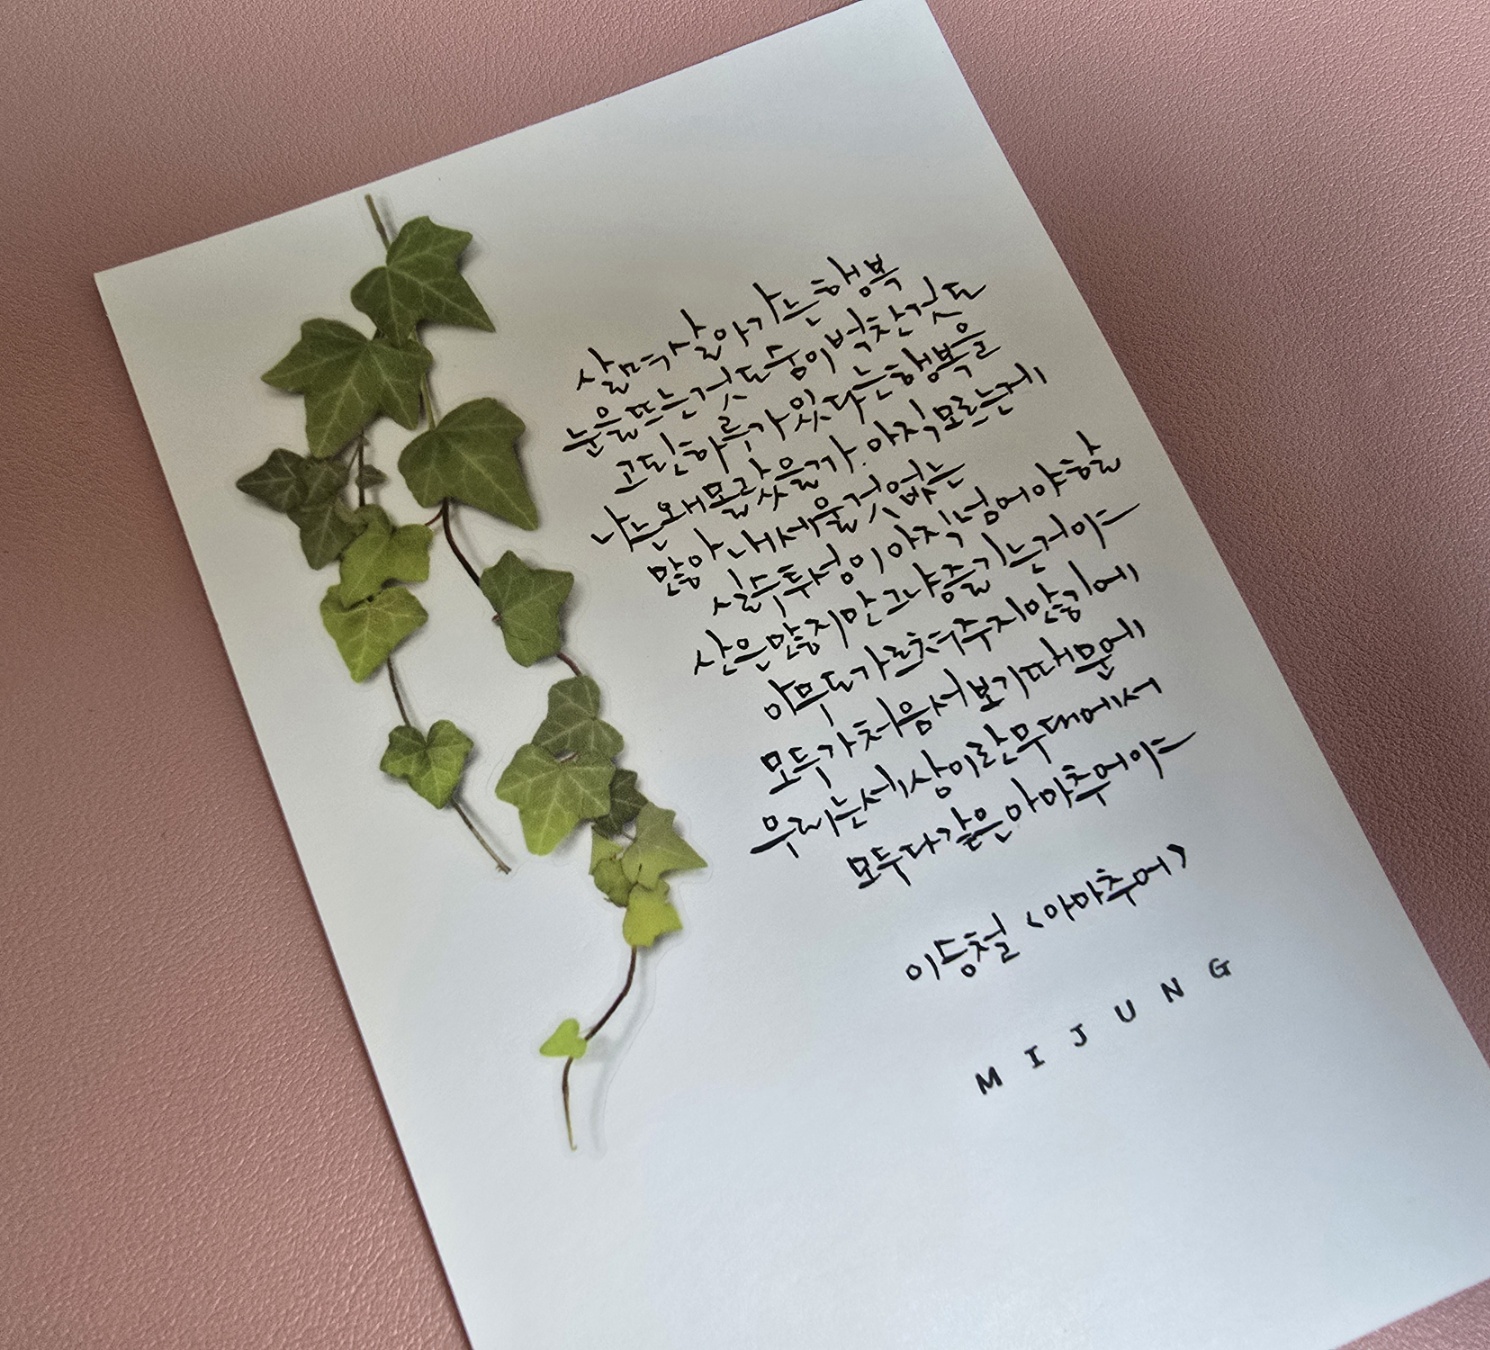 살며 살아가는 행복
눈을 뜨는 것도 숨이 벅찬 것도
고된 하루가 있다는 행복을
나는 왜 몰랐을까. 아직 모르는 게
많아 내세울 것 없는
실수투성이 아직 넘어야 할
산은 많지만 그냥 즐기는 거야
아무도 가르쳐주지 않기에
모두가 처음 서보기 때문에
우리는 세상이란 무대에서
모두 다 같은 아마추어야
이승철 <아마추어>
MIJUNG